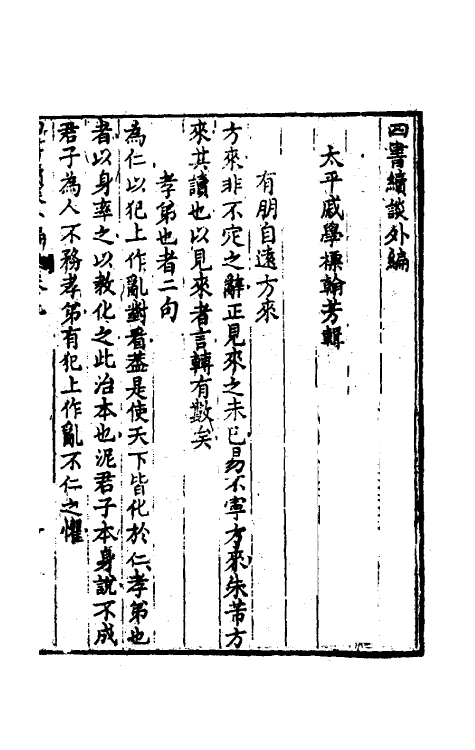 四書續談外編
太平戚學標翰芳輯
有朋自遠方來
方來非不定之辭正見來之未已易不寧方來朱芾方
來其讀也以見來者言轉有數矣
孝弟也者二句
為仁以犯上作亂對看葢是使天下皆化於仁孝弟也
者以身率之以教化之此治本也泥君子本身說不成
君子為人不務孝弟有犯上作亂不仁之懼